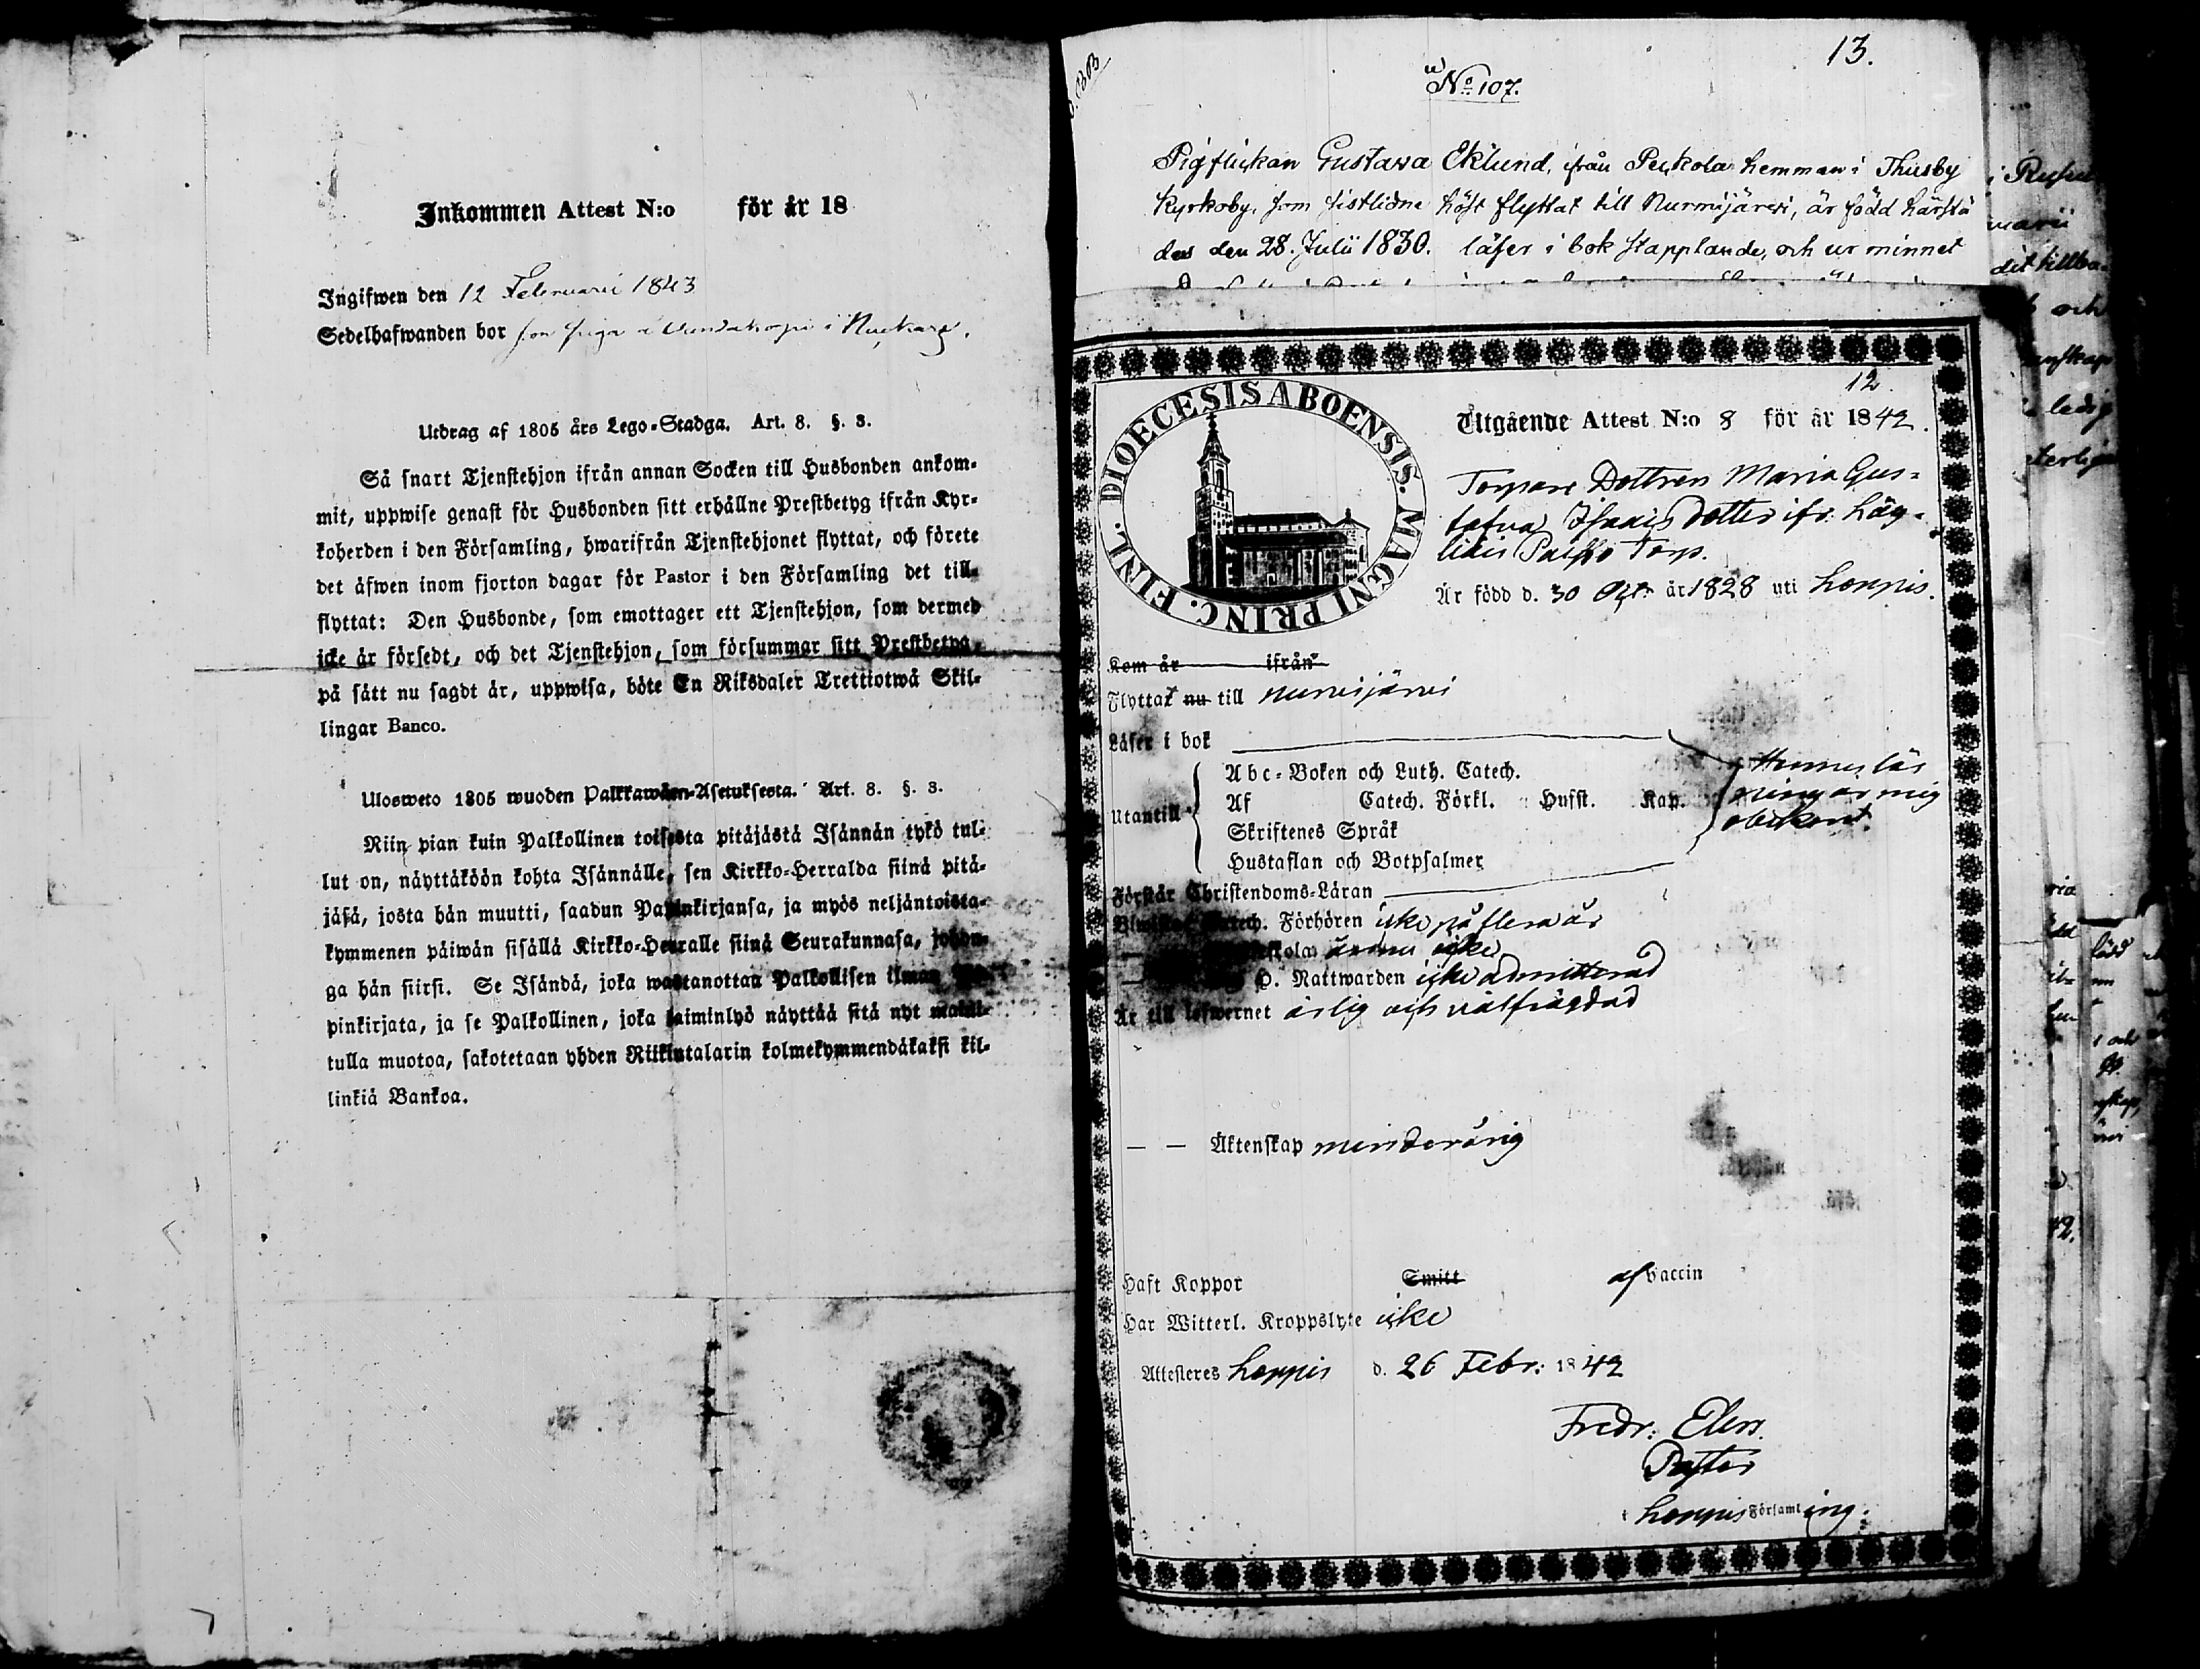 Inkommen Attest N:o för år 18
Ingifwen den 12 Februarii 1843
Sedelhafwanden bor som piga i Nuckars.
Utdrag af 1805 års Lego-Stadga. Art. 8. §. 3.
Så snart Tjenstehjon ifrån annan Socken till Husbonden ankom-
mit, uppwise genast för Husbonden sitt erhållne Prestbetyg ifrån Kyr-
koherden i den Församling, hwarifrån Tjenstehjonet flyttat, och förete
det äfwen inom fjorton dagar för Pastor i den Församling det till-
flyttat: Den Husbonde, som emottager ett Tjenstehjon, som dermed
icke är försedt, och det Tjenstehjon, som försummar sitt Prestbetyg,
på sätt nu sagdt är, uppwisa, böte En Riksdaler Trettiotwå Skil-
lingar Banco.
Ulosweto 1805 wuoden Palkkawäen-Asetuksesta. Art. 8. §. 3.
Niin pian kuin Palkollinen toisesta pitäjästä Isännän tykö tul-
lut on, näyttäköön kohta Isännälle, sen Kirkko-Herralda siinä pitä-
jäßä, josta hän muutti, saadun Papinkirjansa, ja myös neljäntoista-
kymmenen päiwän sisällä Kirkko-Herralle siinä Seurakunnasa, johon-
ga hän siirsi. Se Isändä, joka wastanottaa Palkollisen ilman Pa-
pinkirjata, ja se Palkollinen, joka laiminlyö näyttää sitä nyt mainit-
tulla muotoa, sakotetaan yhden Riikintalarin kolmekymmendäkaksi kil-
linkiä Bankoa.
13.
No 107.
Pigflickan Gustava Eklund, ifrån Peckola hemman i Thusby
Kyrkoby, som sistlidne höst flyttat till Nurmijärvi, är född härstä
des den 28. Julii 1830. läser i bok stapplande, och ur minnet
12.
DIOECESIS ABOENSIS. MAGNI PRINC. FINL.
Utgående Attest N:o 8 för år 1842.
Torpare Dottren Maria Gus-
tafva Isaacs dotter ifr. Läg-
liais Torp.
Är född d. 30 Oct. år 1828 uti Loppis.
Kom år ifrån
Flyttat nu till Nurmijärvi
Läser i bok
Abc-Boken och Luth. Catech.
Utantill Af Catech. Förkl. Husst. Kap.
Skriftenes Språk
Hustaflan och Botpsalmer
Hennes läs
ning är mig
obekant.
Förstår Christendoms-Läran
Förhören icke på flera år
ännu icke
H. Nattwarden icke admitterad
Är till lefwernet ärlig och välfrägdad
— — Äktenskap minderårig
Haft Koppor Smitt af Vaccin
Har Witterl. Kroppslyte icke
Attesteres Loppis d. 26 Febr: 1842
Fredr: Elers.
Pastor
i Loppis Församling.